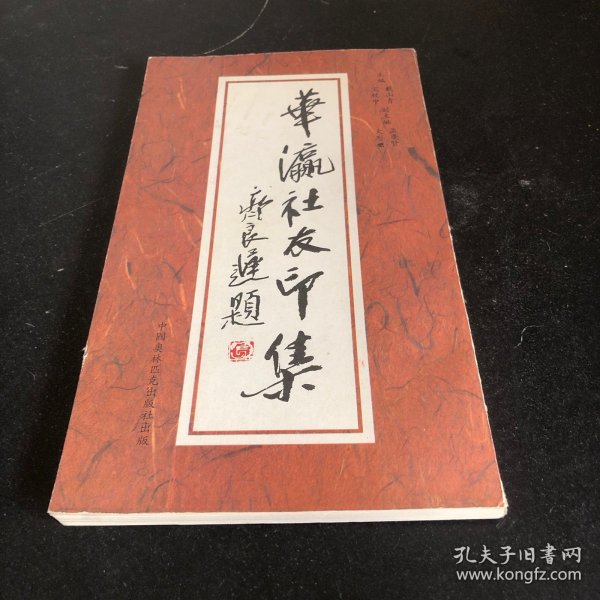 華瀛社友印集
齊良遲題
中國奧林匹克出版社出版
主編
孔夫子旧書网
www.kongfz.com